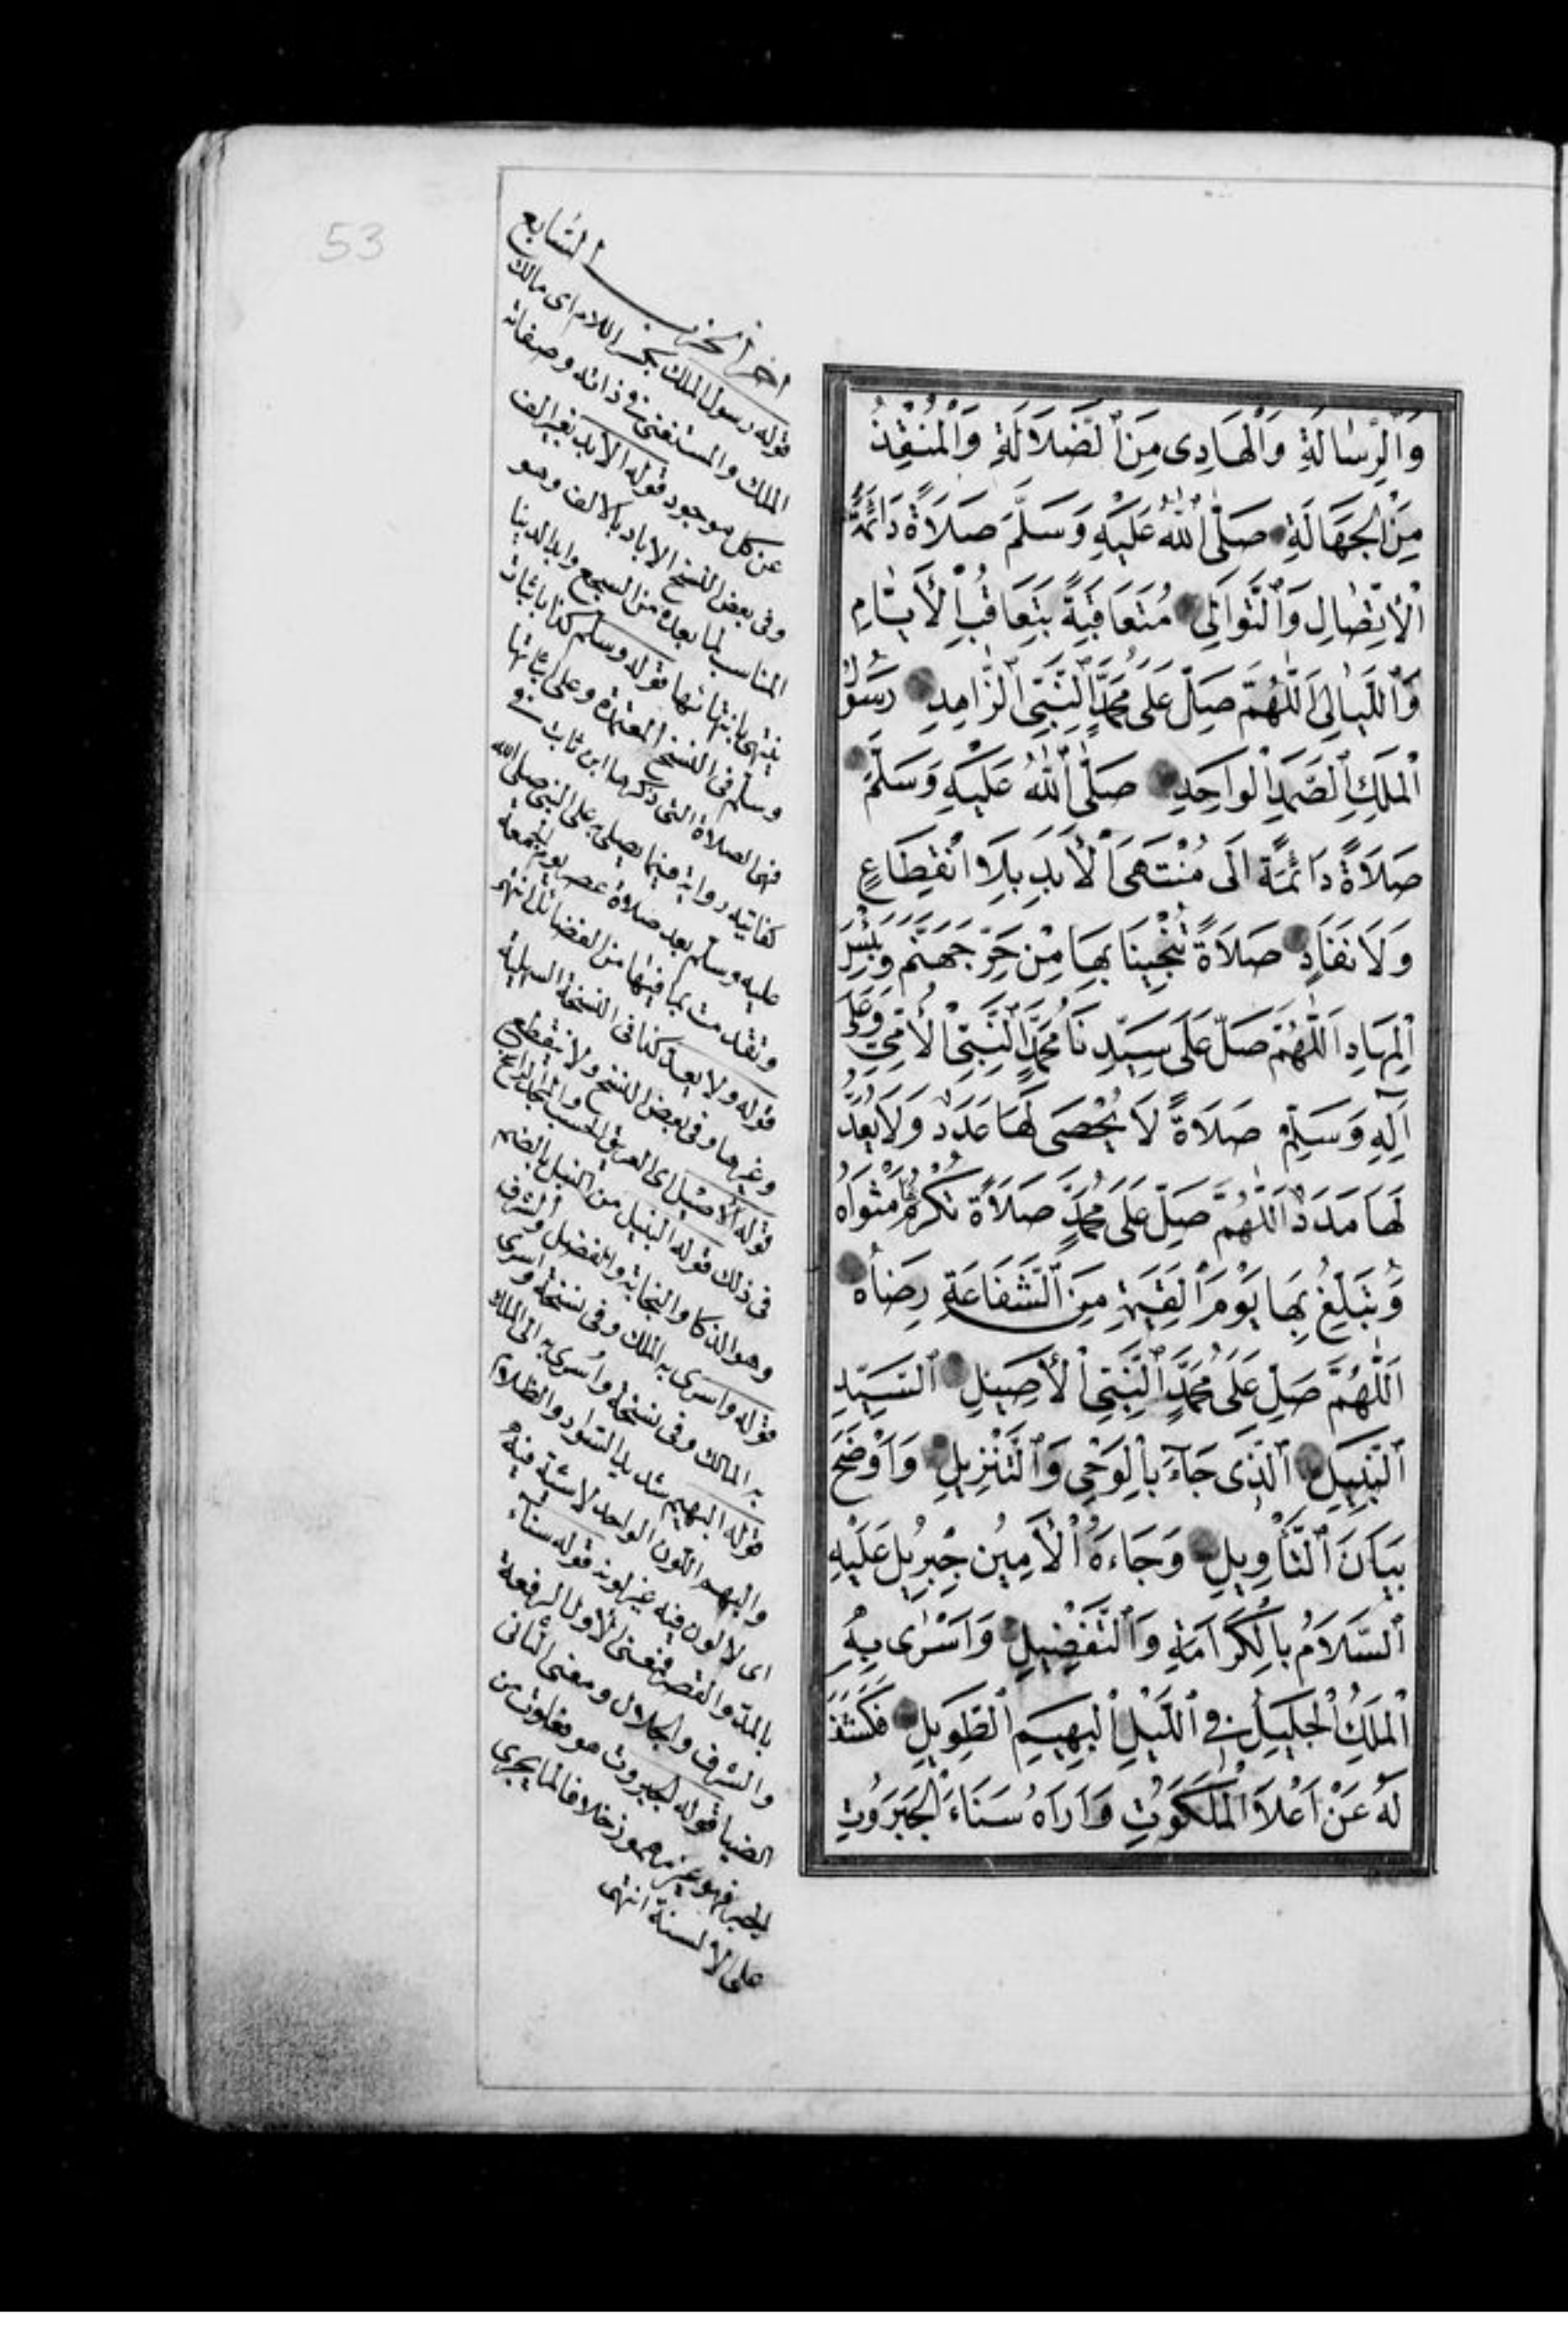 53
وَالرِّسَالَةِ وَالْهَادِى مِنَ الضَّلَالَةِ وَالْمُنْقِذِ
مِنَ الْجَهَالَةِ صَلَّى اللهُ عَلَيْهِ وَسَلَّمَ صَلَاةً دَائِمَةَ
الْاِتِّصَالِ وَالتَّوَالِى مُتَعَاقِبَةً بِتَعَاقُبِ الْأَيَّامِ
وَاللَّيَالِى اَللّٰهُمَّ صَلِّ عَلَى مُحَمَّدٍ النَّبِىِّ الزَّاهِدِ رَسُولِ
الْمَلِكِ الصَّمَدِ الْوَاحِدِ صَلَّى اللهُ عَلَيْهِ وَسَلَّمَ
صَلَاةً دَائِمَةً اِلَى مُنْتَهَى الْأَبَدِ بِلَا انْقِطَاعٍ
وَلَا نَفَادٍ صَلَاةً تُنْجِينَا بِهَا مِنْ حَرِّ جَهَنَّمَ وَبِئْسَ
الْمِهَادِ اَللّٰهُمَّ صَلِّ عَلَى سَيِّدِنَا مُحَمَّدٍ النَّبِىِّ الْأُمِّىِّ وَعَلَى
اٰلِهِ وَسَلِّمْ صَلَاةً لَا يُحْصَى لَهَا عَدَدٌ وَلَا يُعَدُّ
لَهَا مَدَدٌ اَللّٰهُمَّ صَلِّ عَلَى مُحَمَّدٍ صَلَاةً تُكْرِمُ بِهَا مَثْوَاهُ
وَتُبَلِّغُ بِهَا يَوْمَ الْقِيٰمَةِ مِنَ الشَّفَاعَةِ رِضَاهُ
اَللّٰهُمَّ صَلِّ عَلَى مُحَمَّدٍ النَّبِىِّ الْأَصِيلِ السَّيِّدِ
النَّبِيلِ الَّذِى جَاءَ بِالْوَحْىِ وَالتَّنْزِيلِ وَاَوْضَحَ
بَيَانَ التَّأْوِيلِ وَجَاءَهُ الْأَمِينُ جِبْرِيلُ عَلَيْهِ
السَّلَامُ بِالْكَرَامَةِ وَالتَّفْضِيلِ وَاَسْرٰى بِهِ
الْمَلِكُ الْجَلِيلُ فِى اللَّيْلِ الْبَهِيمِ الطَّوِيلِ فَكَشَفَ
لَهُ عَنْ اَعْلَا الْمَلَكُوتِ وَاَرَاهُ سَنَاءَ الْجَبَرُوتِ
اخر الحزب السابع
قوله رسول الملك بكسر اللام اى مالك
الملك والمستغنى فى ذاته وصفاته
عن كل موجود قوله الابد بغير الف
وفى بعض النسخ الاباد بالالف وهو
المناسب لما بعده من السجع وابد الدنيا
ينتهى بانتهائها قوله وسلم كذا باثبات
وسلم فى النسخ المعتمدة وعلى اثباتها
فهى الصلاة التى ذكرها ابن ثابت فى
كفايته رواية فيما يصلى به على النبى صلى الله
عليه وسلم بعد صلاة عصر يوم الجمعة
وتقدمت بما فيها من الفضائل انتهى
قوله ولا يعد كذا فى النسخة السهلية
وغيرها وفى بعض النسخ ولا ينقطع
قوله الأصيل اى العريق الحسب والمجد الراسخ
فى ذلك قوله النبيل من النبل بالضم
وهو الذكا والنجابة والفضل والشرف
قوله واسرى به الملك وفى نسخة واسرى
به المالك وفى نسخة واسرى به الى الملك
قوله البهيم شديد السواد والظلام
والبهيم اللون الواحد لا شية فيه
اى لا لون فيه غير لونه قوله سناء
بالمد والقصر فمعنى الأول الرفعة
والشرف والجلال ومعنى الثانى
الضيا قوله الجبروت هو فعلوت من
الجبر فهو غير مهموز خلافا لما يجرى
على الالسنة انتهى